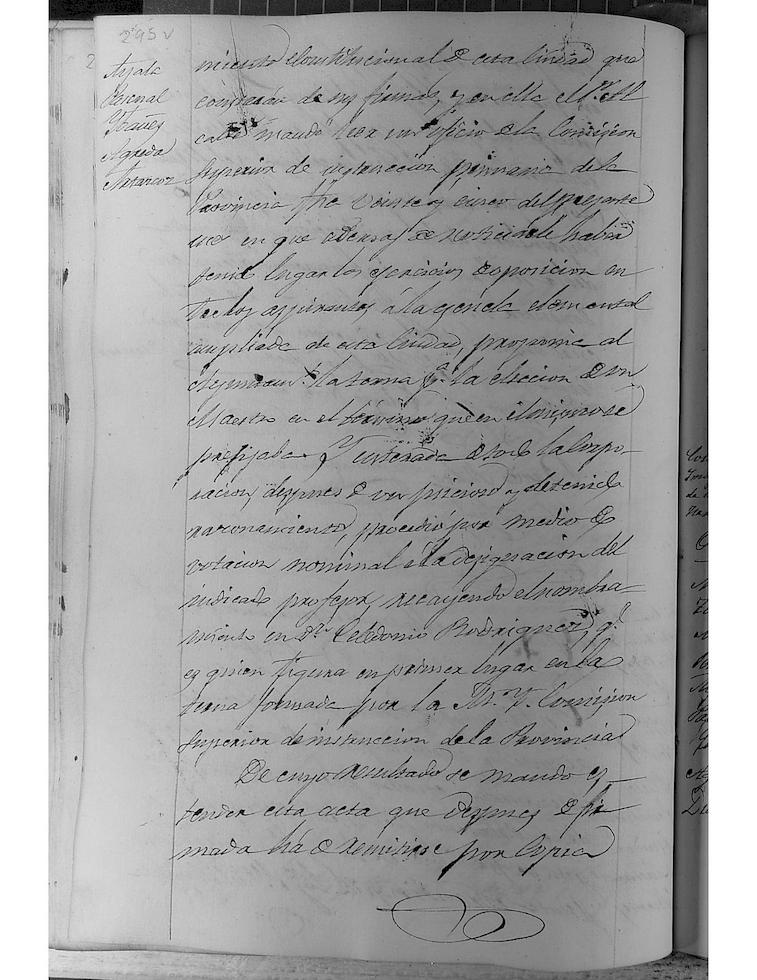 295 v
Ayala
Pascual
Ybañes
Agreda
Matarcoz
miento Constitucional de esta Ciudad que
constarán de sus firmas, y en ella el Sr. Al
calde mandó leer un oficio de la Comision
Superior de instruccion primaria de la
Provincia fha veinte y cinco del presente
mes en que ademas de noticiarle habia
tenido lugar los ejercicios de oposicion en
tre los aspirantes á la escuela elemental
ampliada de esta Ciudad, proponia al
Ayuntam.to la terna p.a la eleccion de un
Maestro en el término que en el mismo se
prefijaba. Y enterada de todo la Corpo-
racion, despues de un juicioso y detenido
razonamiento, procedió por medio de
votacion nominal a la designacion del
indicado profesor, recayendo el nombra-
miento en Dn. Celedonio Rodriguez, q.e
es quien figura en primer lugar en la
terna formada por la M. Y. Comision
Superior de instruccion de la Provincia
De cuyo resultado se mandó es-
tender esta acta que despues de fir
mada há de remitirse por Copia